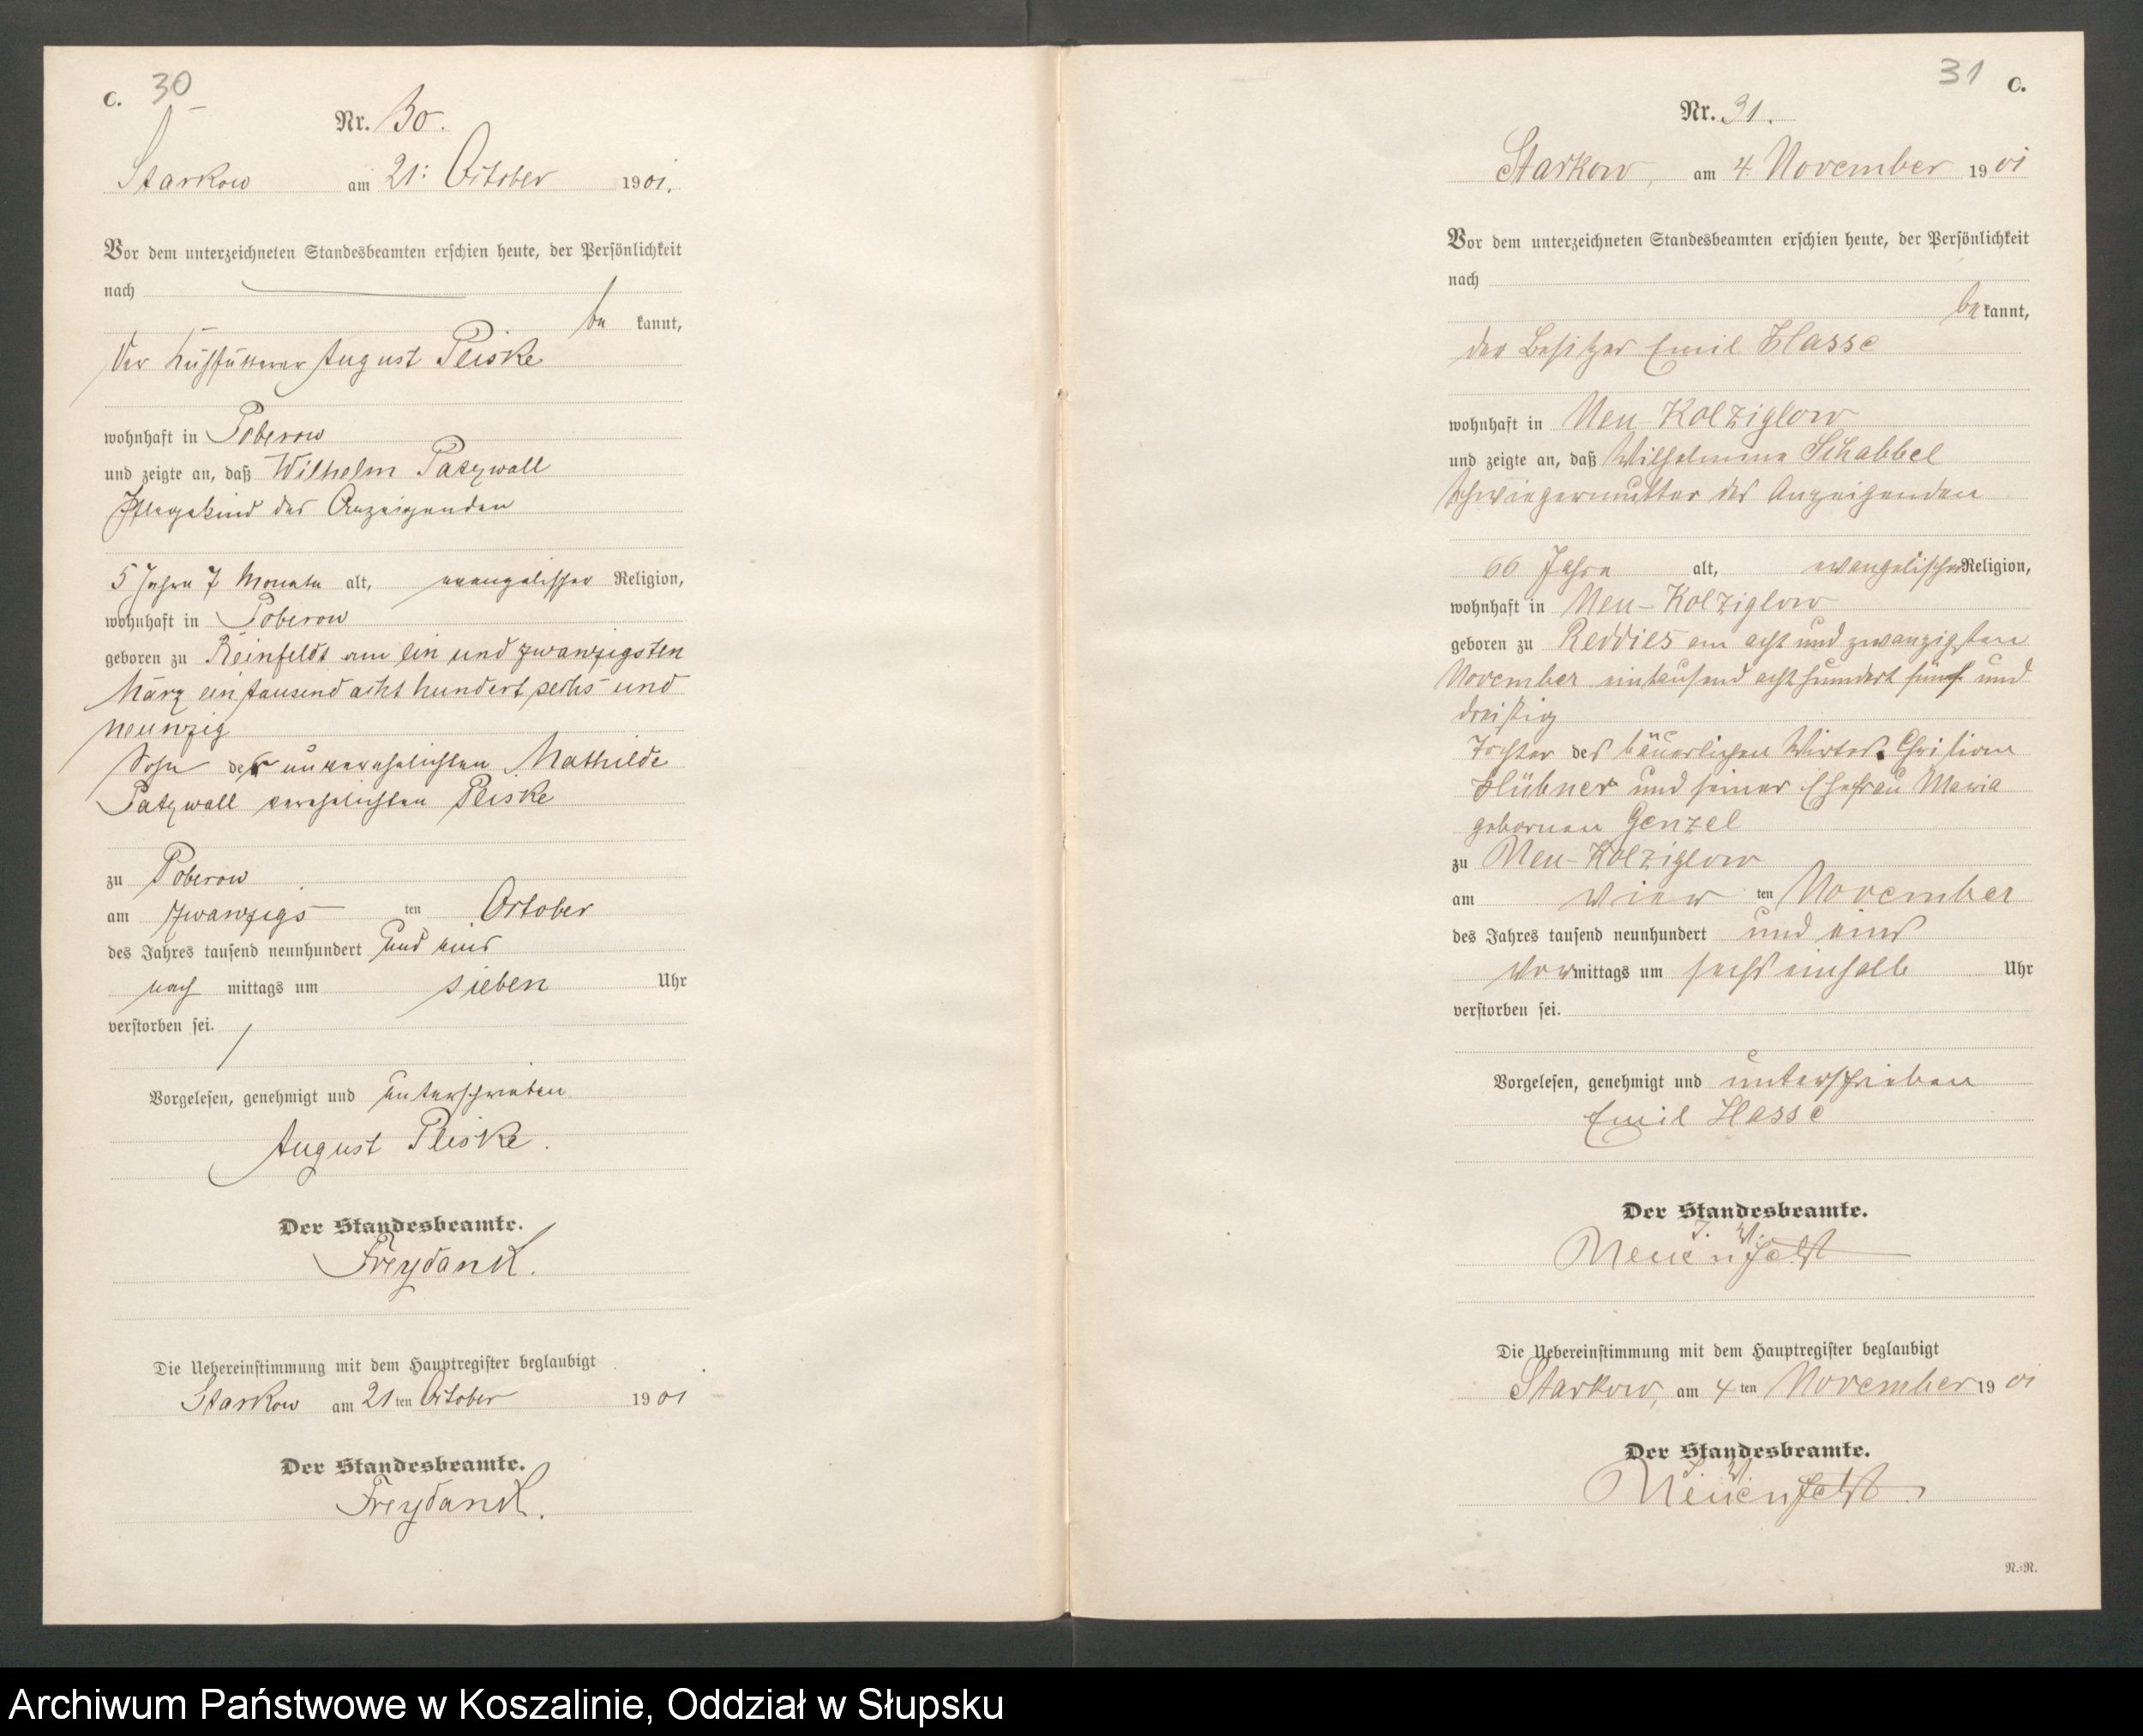 C. 30
Nr. 30.
Starkow am 21. October 1901.
Vor dem unterzeichneten Standesbeamten erschien heute, der Persönlichkeit
nach
be kannt,
der Kuhfütterer August Pliske
wohnhaft in Poberow
und zeigte an, daß Wilhelm Patzwall
Pflegekind des Anzeigenden
5 Jahre 7 Monate alt, evangelischer Religion,
wohnhaft in Poberow
geboren zu Reinfeldt am ein und zwanzigsten
März ein tausend acht hundert sechs und
neunzig
Sohn der unverehelichten Mathilde
Patzwall verehelichten Pliske
zu Poberow
am zwanzigs ten October
des Jahres tausend neunhundert und eins
nach mittags um sieben Uhr
verstorben sei.
Vorgelesen, genehmigt und unterschrieben
August Pliske.
Der Standesbeamte.
Freydank.
Die Uebereinstimmung mit dem Hauptregister beglaubigt
Starkow am 21 ten October 1901
Der Standesbeamte.
Freydank.
31 C.
Nr. 31.
Starkow, am 4. November 1901
Vor dem unterzeichneten Standesbeamten erschien heute, der Persönlichkeit
nach
be kannt,
der Besitzer Emil Hasse
wohnhaft in Neu-Kolziglow
und zeigte an, daß Wilhelmine Schabbel
Schwiegermutter des Anzeigenden
66 Jahre alt, evangelischer Religion,
wohnhaft in Neu-Kolziglow
geboren zu Reddies am acht und zwanzigsten
November eintausend acht hundert fünf und
dreißig
Tochter des bäuerlichen Wirtes Christian
Hübner und seiner Ehefrau Maria
gebornen Genzel
zu Neu-Kolziglow
am vier ten November
des Jahres tausend neunhundert und eins
vor mittags um sechs einhalb Uhr
verstorben sei.
Vorgelesen, genehmigt und unterschrieben
Emil Hasse
Der Standesbeamte.
J. V.
Neuenfeldt
Die Uebereinstimmung mit dem Hauptregister beglaubigt
Starkow, am 4 ten November 1901
Der Standesbeamte.
J. V.
Neuenfeldt
N.-N.
Archiwum Państwowe w Koszalinie, Oddział w Słupsku